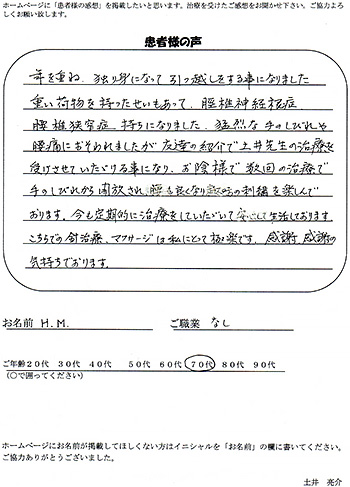 ホームページに「患者様の感想」を掲載したいと思います。治療を受けたご感想をお聞かせ下さい。ご協力よろ
しくお願い致します。
患者様の声
年を重ね、独り身になって引っ越しをする事になりました
重い荷物を持ったせいもあって、頸椎神経根症
腰椎狭窄症、持ちになりました。猛烈な手のしびれや
腰痛におそわれましたが友達の紹介で土井先生の治療を
受けさせていただける事になり、お陰様で数回の治療で
手のしびれから開放され、腰も良くなり趣味の刺繍を楽しんで
おります。今も定期的に治療をしていただいて安心して生活しております。
こちらでの針治療、マッサージは私にとって極楽です。感謝、感謝の
気持ちでおります。
お名前 H.M. ご職業 なし
ご年齢20代 30代 40代 50代 60代 70代 80代 90代
(○で囲ってください)
ホームページにお名前が掲載してほしくない方はイニシャルを「お名前」の欄に書いてください。
ご協力ありがとうございました。
土井 亮介